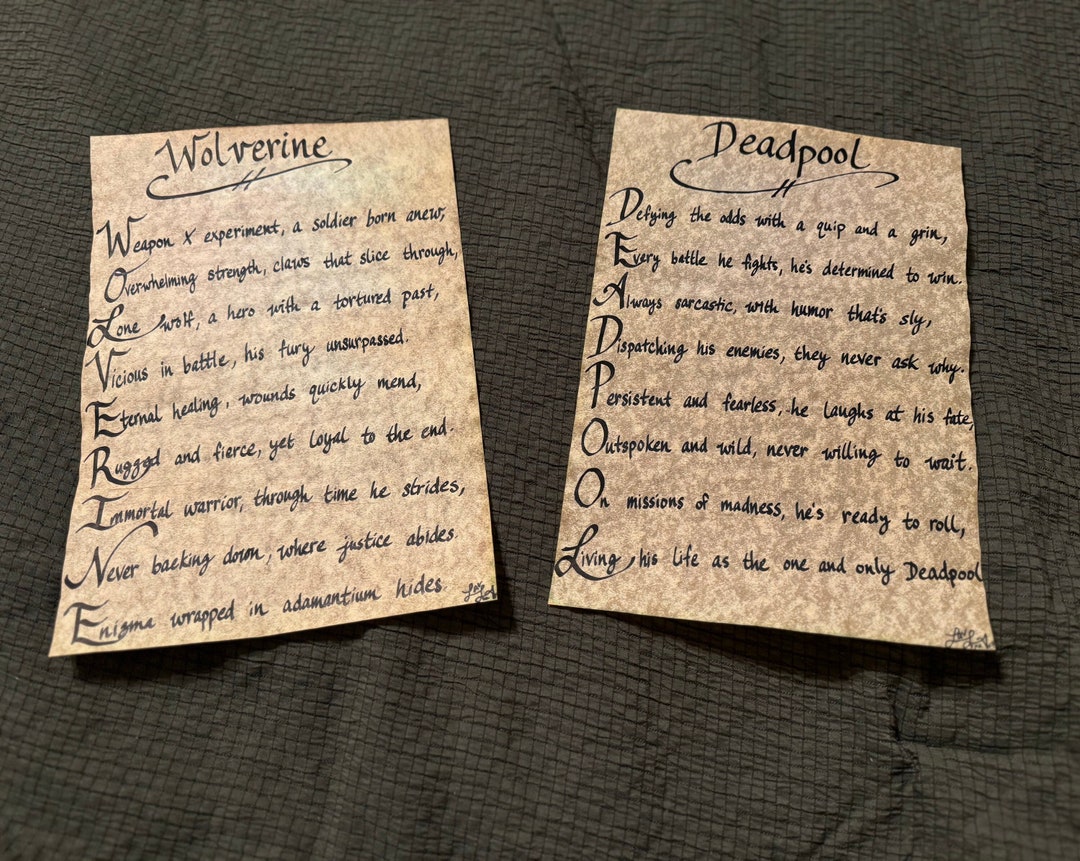 Wolverine
Weapon X experiment, a soldier born anew,
Overwhelming strength, claws that slice through,
Lone wolf, a hero with a tortured past,
Vicious in battle, his fury unsurpassed.
Eternal healing, wounds quickly mend,
Rugged and fierce, yet loyal to the end.
Immortal warrior, through time he strides,
Never backing down, where justice abides.
Enigma wrapped in adamantium hides.
Deadpool
Defying the odds with a quip and a grin,
Every battle he fights, he's determined to win.
Always sarcastic, with humor that's sly,
Dispatching his enemies, they never ask why.
Persistent and fearless, he laughs at his fate,
Outspoken and wild, never willing to wait.
On missions of madness, he's ready to roll,
Living his life as the one and only Deadpool